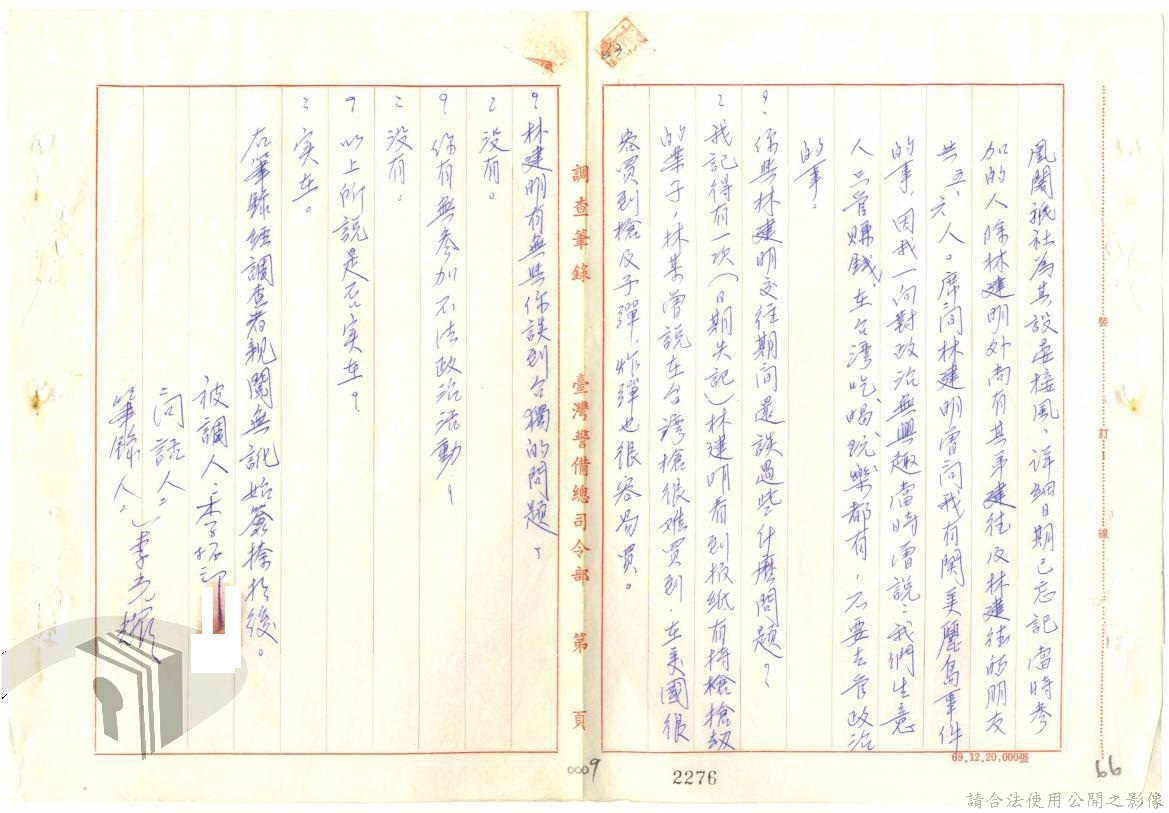 風閣派社為其設宴接風,详細日期已忘記,當時參
加的人除林建明外尚有其弟建往及林建往的朋友
共五、六人。席间林建明曾问我有関美麗島事件
的事,因我一向對政治無興趣當時曾說:我們生意
人只管賺錢,在台湾吃、喝、玩樂都有,不要去管政治
的事。
?你與林建明交往期间還談過些什麼問題?
:我記得有一次(日期失記)林建明看到报纸有持槍搶劫
的案子,林某曾說在台湾槍很难買到,在美國很
容買到槍及子彈,炸彈也很容易買。
69.12.20,000張
裝 訂 線
調查筆錄 臺灣警備總司令部 第 頁
?林建明有無與你談到台獨的問題?
:没有。
?你有無參加不法政治活動?
:没有。
?以上所説是否实在?
:实在。
右筆錄經調查者親閱無訛始簽捺於後。
被調人:
问話人:
筆錄人:李光
0009
2276
66
請合法使用公開之影像